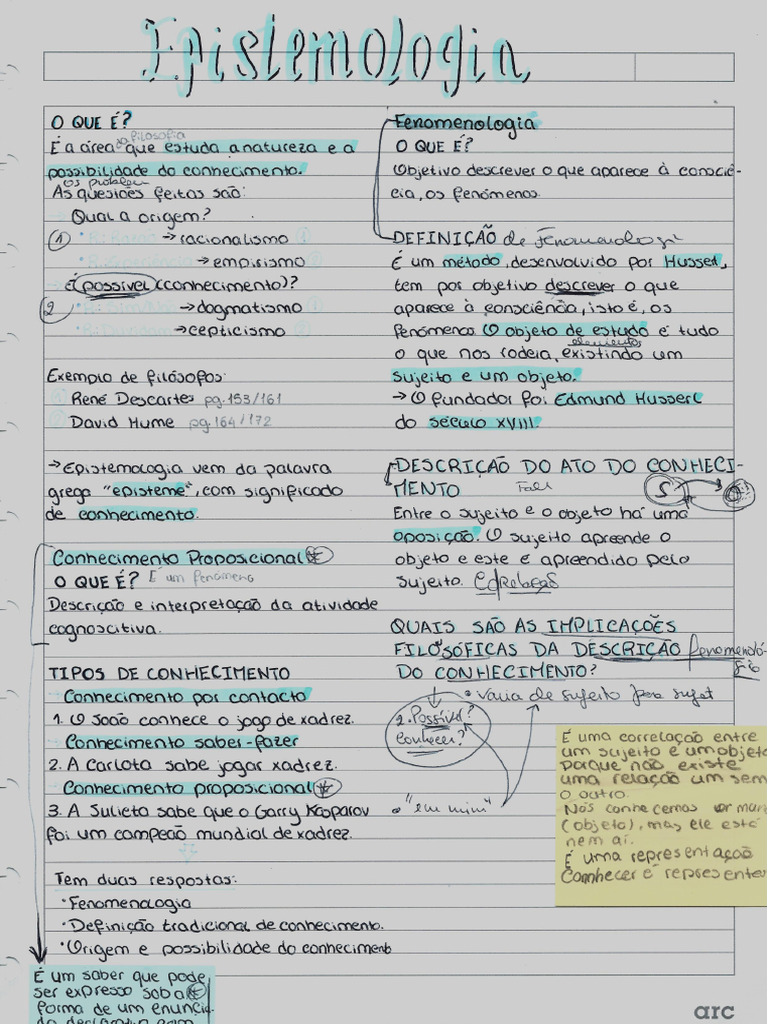 Epistemologia
O QUE É?
da filosofia
É a área que estuda a natureza e a
possibilidade do conhecimento.
os problem
As questões feitas são:
Qual a origem?
1 • R: Razão → racionalismo 1
• R: Experiência → empirismo 2
É possível (conhecimento)?
2 → dogmatismo 1
→ cepticismo 2
Exemplo de filósofos:
1 René Descartes pg.153/161
2 David Hume pg.164/172
→ Epistemologia vem da palavra
grega "episteme", com significado
de conhecimento.
Conhecimento Proposicional *
O QUE É? É um fenómeno
Descrição e interpretação da atividade
cognoscitiva.
TIPOS DE CONHECIMENTO
Conhecimento por contacto
1. O João conhece o jogo de xadrez.
Conhecimento saber-fazer
2. A Carlota sabe jogar xadrez.
Conhecimento proposicional *
3. A Julieta sabe que o Garry Kasparov
foi um campeão mundial de xadrez.
Tem duas respostas:
• Fenomenologia
• Definição tradicional de conhecimento.
• Origem e possibilidade do conhecimento
É um saber que pode
ser expresso sob a
forma de um enuncia-
do declarativo
Fenomenologia
O QUE É?
Objetivo descrever o que aparece à consciê-
cia, os fenómenos.
DEFINIÇÃO de Fenomenologi
É um método, desenvolvido por Husserl,
tem por objetivo descrever o que
aparece à consciência, isto é, os
fenómenos. O objeto de estudo é tudo
elementos
o que nos rodeia, existindo um
sujeito e um objeto.
→ O fundador foi Edmund Husserl
do século XVIII.
DESCRIÇÃO DO ATO DO CONHECI-
MENTO S O
Entre o sujeito e o objeto há uma
oposição. O sujeito apreende o
objeto e este é apreendido pelo
sujeito. Correlação
QUAIS SÃO AS IMPLICAÇÕES
FILOSÓFICAS DA DESCRIÇÃO fenomenoló-
DO CONHECIMENTO?
• varia de sujeito para sujeit
2. Possível?
conhecer?
• "em mim"
É uma correlação entre
um sujeito e um objeto
porque não existe
uma relação um sem
o outro.
Nós conhecemos or mar
(objeto), mas ele está
nem aí.
É uma representação
Conhecer é represente
arc